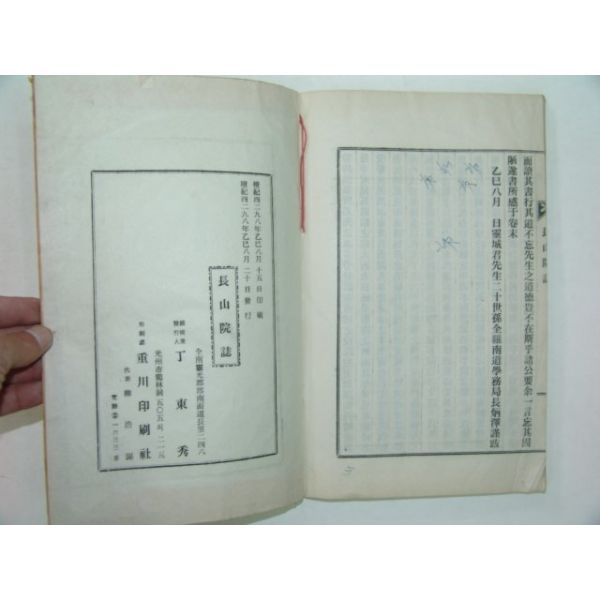 而讀其書行其道不忘先生之道德豈不在斯乎諸公要余一言忘其固
陋遂書所感于卷末
乙巳八月 日靈城君先生二十世孫全羅南道學務局長炳澤謹跋
長山院誌
檀紀四二九八年乙巳八月十五日印刷
檀紀四二九八年乙巳八月二十日發行
長山院誌
全南靈光郡郡南面
發行人 丁東秀
印刷處 重川印刷社
光州市鶴林洞五〇五
代表